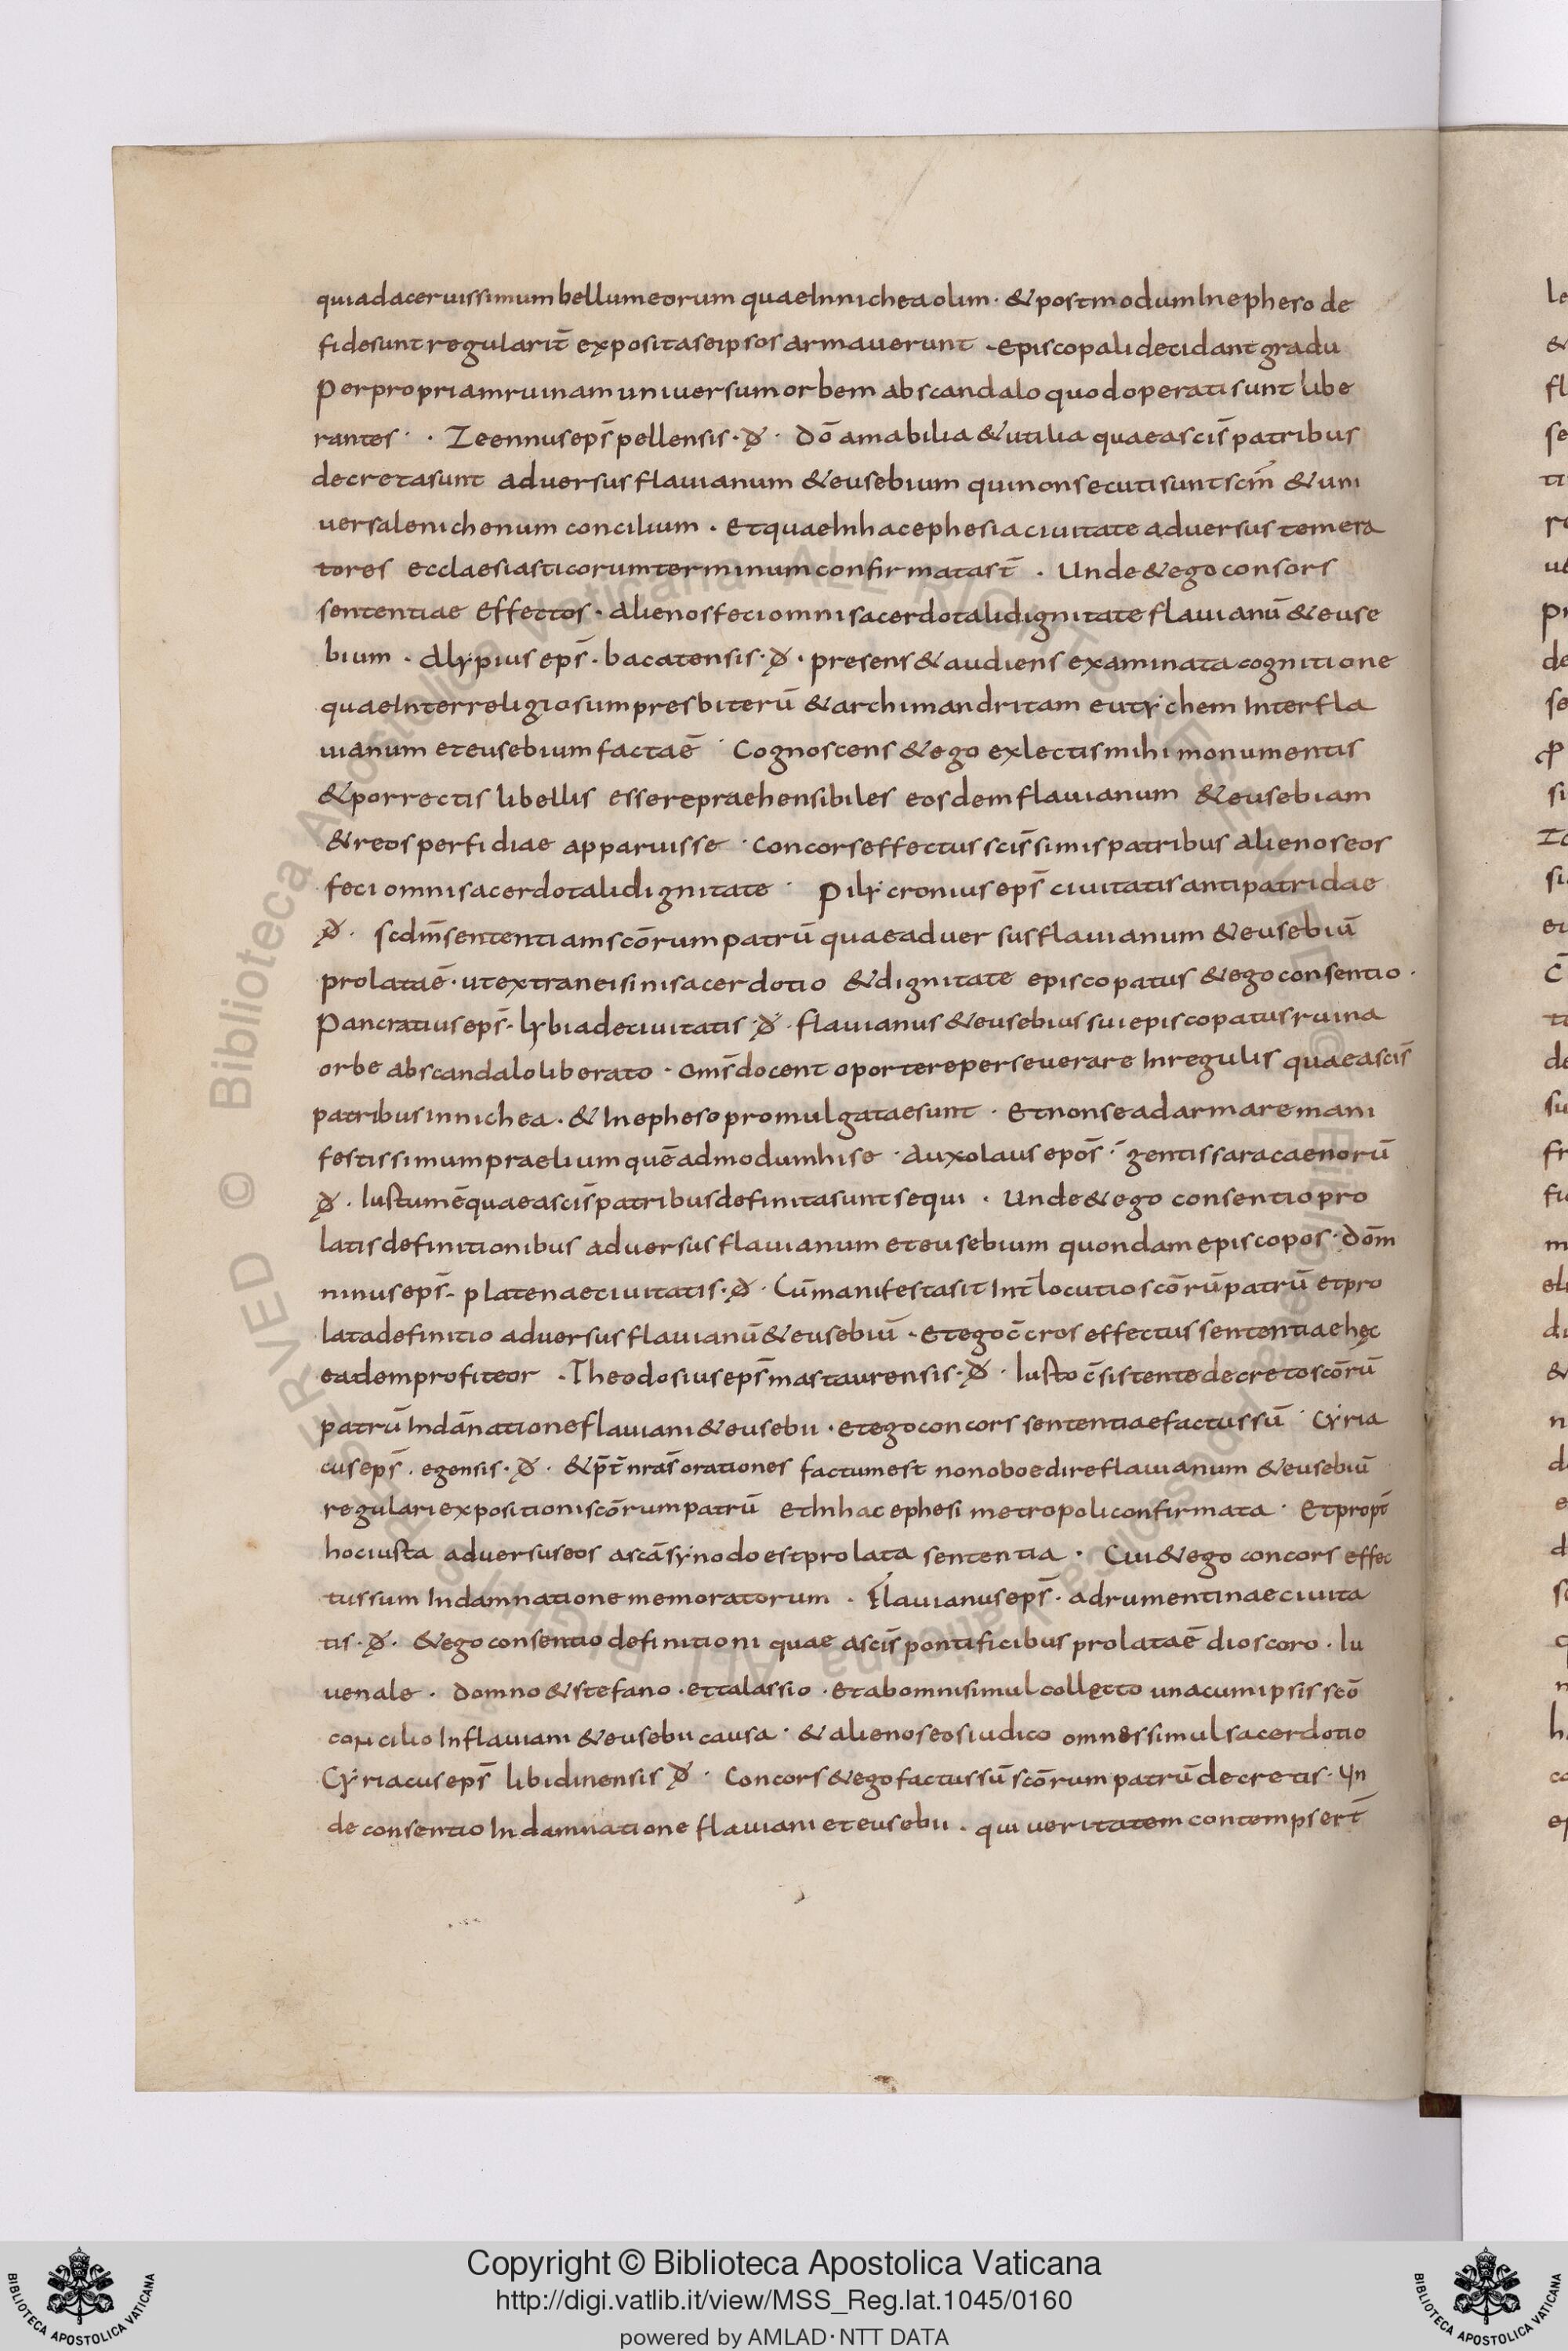 quiadaceruissimum bellumeorum quaeInnichea olim · & postmodum Inepheso de
fidesunt regularit̄ expositaseipsos armauerunt · episcopali decidant gradu
Per propriam ruinam uniuersum orbem ab scandalo quodoperati sunt libe
rantes · · Zeennus ep̄s pellensis · đ · dō amabilia & utilia quae as̄cis patribus
decreta sunt aduersus flauianum & eusebium qui non secuti sunt sc̄m & uni
uersale nichenum concilium · Et quae Inhac ephesia ciuitate aduersus temera
tores ecclaesiasticorum terminum confirmata st̄ · Unde & ego consors
sententiae effectos · alienos feci omni sacerdotali dignitate flauianū & euse
bium · alypius ep̄s · bacatensis · đ · presens & audiens examinata cognitione
quae Inter religiosum presbiterū & archimandritam eutychem Inter fla
uianum et eusebium facta ē · Cognoscens & ego exlectis mihi monumentis
& porrectis libellis esse repraehensibiles eosdem flauianum & eusebiam
& reos perfidiae apparuisse · concors effectus sc̄issimis patribus alienos eos
feci omni sacerdotali dignitate · Pilycronius ep̄s ciuitatis antipatridae
đ · scdm̄ sententiam scōrum patrū quae aduersus flauianum & eusebiū
prolata ē · ut extranei sint sacerdotio & dignitate episcopatus & ego consentio ·
Pancratius ep̄s · lybiade ciuitatis · đ · flauianus & eusebius sui episcopatus ruina
orbe ab scandalo liberato · om̄s docent oportere perseuerare Inregulis quae as̄cis
patribus in nichea · & Inepheso promulgatae sunt · Et non se adarmare mani
festissimum praelium quēadmodum hi se · auxolaus epōs · gentis saracaenorū
đ · Iustum ē quae as̄cis patribus definita sunt sequi · Unde & ego consentio pro
latis definitionibus aduersus flauianum et eusebium quondam episcopos · dōm
ninus ep̄s · platenae ciuitatis · đ · Cū manifesta sit Int̄locutio scōrū patrū et pro
lata definitio aduersus flauianū & eusebiū · Et ego c̄cros effectus sententiae hęc
eadem profiteor · Theodosius ep̄s mastaurensis · đ · Iusto c̄sistente decreto scōrū
patrū Indānatione flauiani & eusebii · et ego concors sententiae factus sū · Cyria
cus ep̄s · egensis · đ · & p̄t̄ nrās orationes factum est non oboedire flauianum & eusebiū
regulari expositioni scōrum patrū et Inhac ephesi metropoli confirmata · Et propt̄
hoc iusta aduersus eos a scā synodo est prolata sententia · Cui & ego concors effec
tus sum Indamnatione memoratorum · Flauianus ep̄s · adrumentinae ciuita
tis · đ · & ego consentio definitioni quae as̄cis pontificibus prolata ē dioscoro · Iu
uenale · domno & stefano · et talassio · Et ab omni simul collecto una cum ipsis scō
concilio In flauiani & eusebii causa · & alienos eos iudico omnes simul sacerdotio
Cyriacus ep̄s libidinensis đ · Concors & ego factus sū scōrum patrū decretis · Un
de consentio In damnatione flauiani et eusebii · qui ueritatem contempsert̄
Copyright © Biblioteca Apostolica Vaticana
http://digi.vatlib.it/view/MSS_Reg.lat.1045/0160
powered by AMLAD · NTT DATA